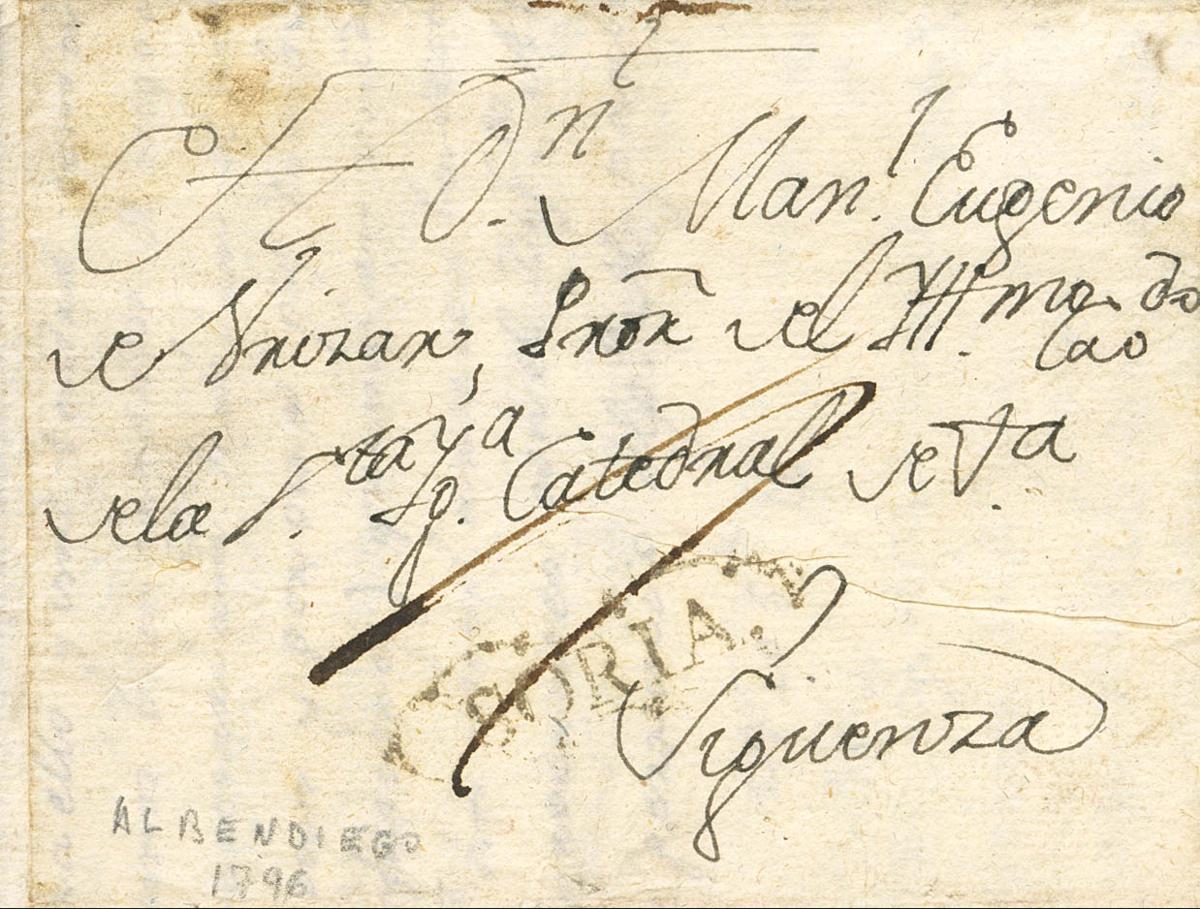 A Dn Manl. Eugenio
de Vrizar, Sror del Yllmo. Cdo
Cao
de la Sta. Yga. Catedral de Va.
SORIA.
Siguenza
ALBENDIEGO
1796